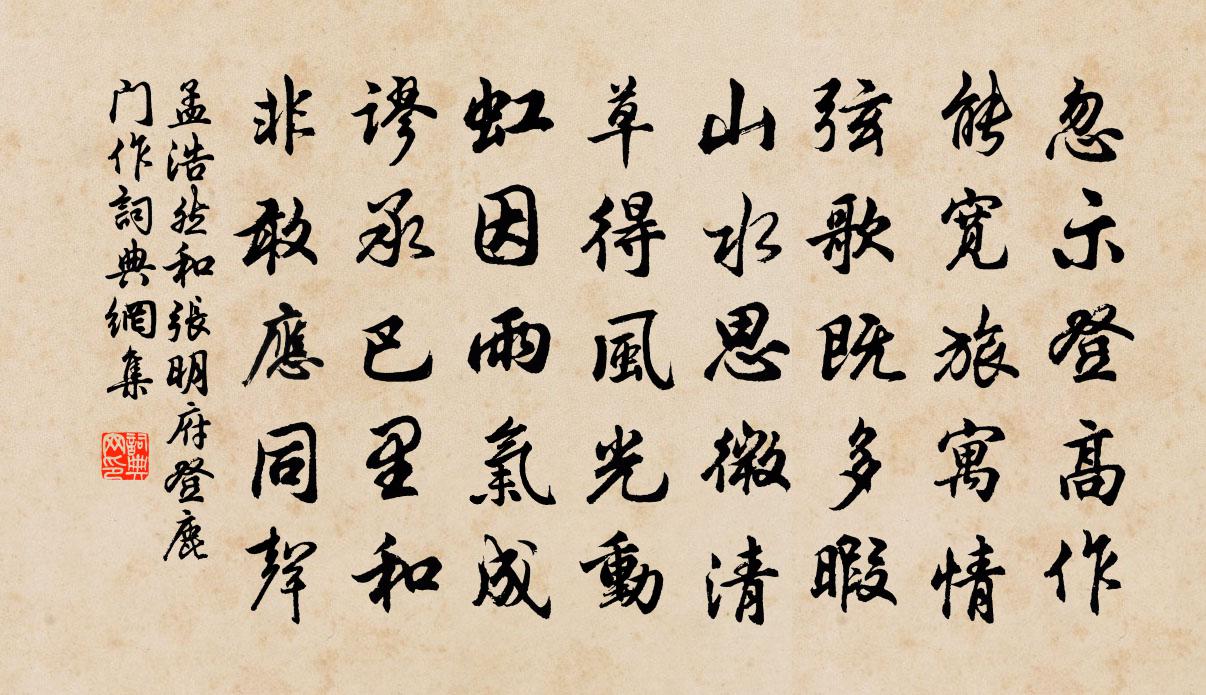 忽示登高作
能寛旅寓情
弦歌既多暇
山水思微清
草得風光動
虹因雨氣成
謬承巴里和
非敢應同聲
孟浩然和張明府登鹿
门作詞典網集
詞典
网印